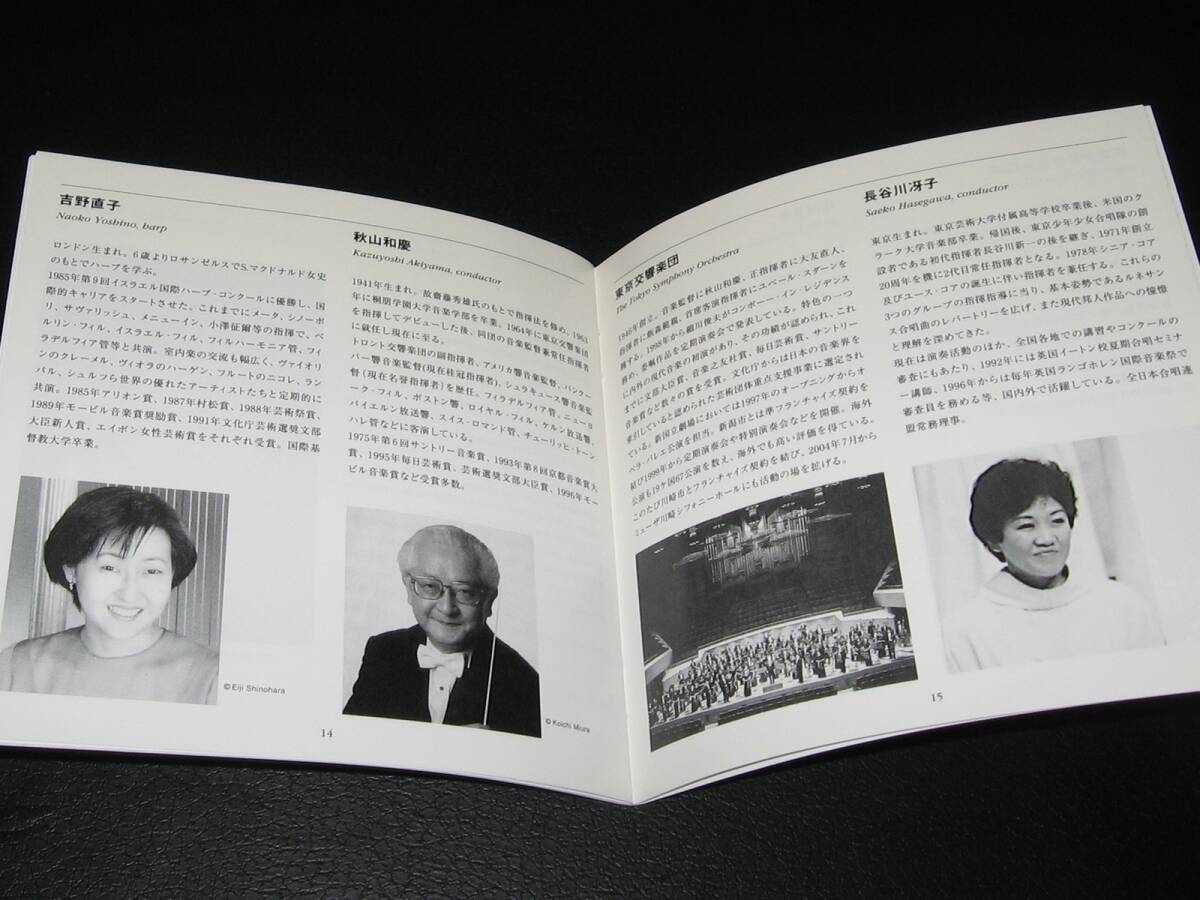 吉野直子
Naoko Yoshino, harp
ロンドン生まれ。6歳よりロサンゼルスでS.マクドナルド女史
のもとでハープを学ぶ。
1985年第9回イスラエル国際ハープ・コンクールに優勝し、国
際的キャリアをスタートさせた。これまでにメータ、シノーポ
リ、サヴァリッシュ、メニューイン、小澤征爾等の指揮で、ベ
ルリン・フィル、イスラエル・フィル、フィルハーモニア管、フィ
ラデルフィア管等と共演。室内楽の交流も幅広く、ヴァイオリ
ンのクレーメル、ヴィオラのハーゲン、フルートのニコレ、ラン
パル、シュルツら世界の優れたアーティストたちと定期的に
共演。1985年アリオン賞、1987年村松賞、1988年芸術祭賞、
1989年モービル音楽賞奨励賞、1991年文化庁芸術選奨文部
大臣新人賞、エイボン女性芸術賞をそれぞれ受賞。国際基
督教大学卒業。
©Eiji Shinohara
秋山和慶
Kazuyoshi Akiyama, conductor
1941年生まれ。故齋藤秀雄氏のもとで指揮法を修め、1963
年に桐朋学園大学音楽学部を卒業。1964年に東京交響楽団
を指揮してデビューした後、同団の音楽監督兼常任指揮者
に就任し現在に至る。
トロント交響楽団の副指揮者、アメリカ響音楽監督、バンクー
バー響音楽監督(現在桂冠指揮者)、シュラキュース響音楽監
督(現在名誉指揮者)を歴任。フィラデルフィア管、ニューヨ
ーク・フィル、ボストン響、ロイヤル・フィル、ケルン放送響、
バイエルン放送響、スイス・ロマンド管、チューリッヒ・トーン
ハレ管などに客演している。
1975年第6回サントリー音楽賞、1993年第8回京都音楽賞大
賞、1995年毎日芸術賞、芸術選奨文部大臣賞、1996年モー
ビル音楽賞など受賞多数。
© Koichi Miura
14
東京交響楽団
The Tokyo Symphony Orchestra
1946年創立。音楽監督に秋山和慶、正指揮者に大友直人、
指揮者に飯森範親、首席客演指揮者にユベール・スダーンを
擁する。1998年から細川俊夫がコンポーザー・イン・レジデンス
務め、委嘱作品を定期演奏会で発表している。特色の一つ
に内外の現代音楽の初演があり、その功績が認められ、これ
までに文部大臣賞、音楽之友社賞、毎日芸術賞、サントリー
音楽賞など数々の賞を受賞。文化庁からは日本の音楽界を
牽引していると認められた芸術団体重点支援事業に選定され
ている。新国立劇場においては1997年のオープニングからオ
ペラ・バレエ公演を担当。新潟市とは準フランチャイズ契約を
結び1999年から定期演奏会や特別演奏会などを開催。海外
公演も19ヶ国67公演を数え、海外でも高い評価を得ている。
このたび川崎市とフランチャイズ契約を結び、2004年7月から
ミューザ川崎シフォニーホールにも活動の場を拡げる。
長谷川冴子
Saeko Hasegawa, conductor
東京生まれ。東京芸術大学付属高等学校卒業後、米国のク
ラーク大学音楽部卒業。帰国後、東京少年少女合唱隊の創
設者である初代指揮者長谷川新一の後を継ぎ、1971年創立
20周年を機に2代目常任指揮者となる。1978年シニア・コア
及びユース・コアの誕生に伴い指揮者を兼任する。これらの
3つのグループの指揮指導に当り、基本姿勢であるルネサン
ス合唱曲のレパートリーを広げ、また現代邦人作品への憧憬
と理解を深めてきた。
現在は演奏活動のほか、全国各地での講習やコンクールの
審査にもあたり、1992年には英国イートン校夏期合唱セミナ
ー講師、1996年からは毎年英国ランゴホレン国際音楽祭で
審査員を務める等、国内外で活躍している。全日本合唱連
盟常務理事。
15